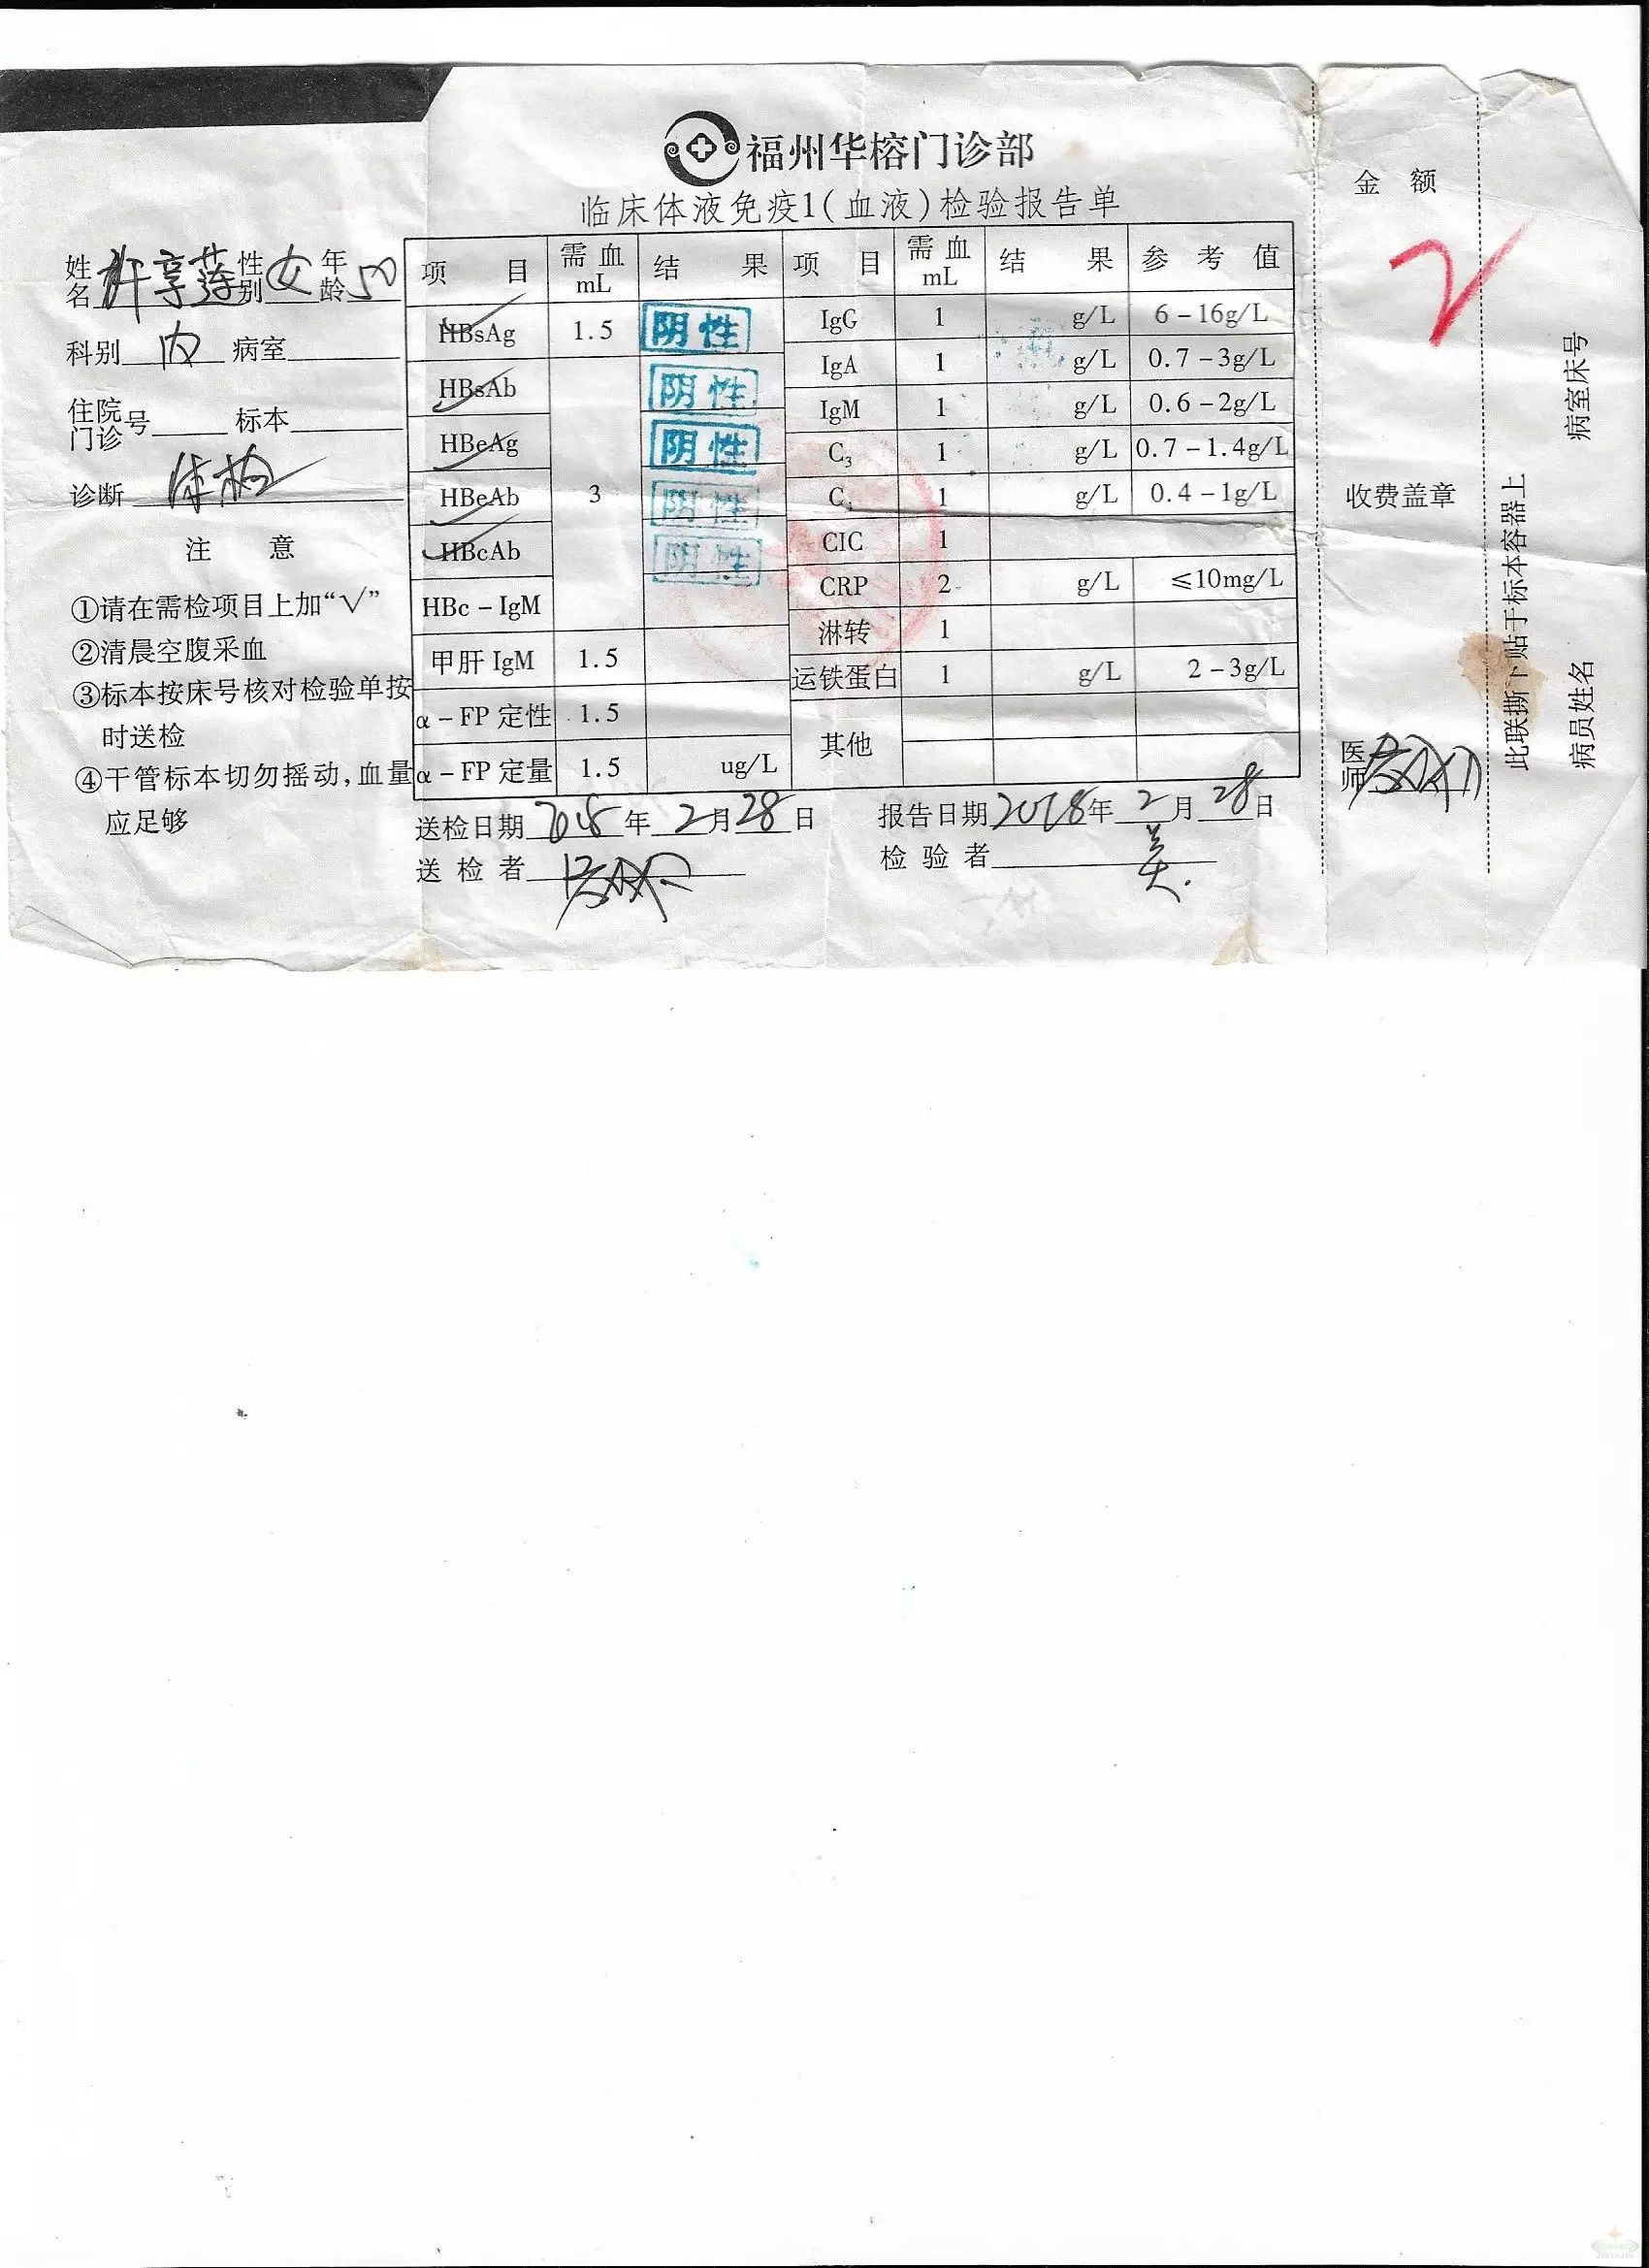 福州华榕门诊部
临床体液免疫1(血液)检验报告单
姓名 许享莲 性别 女 年龄 50
科别 内 病室
住院门诊号 标本
诊断 体检
注 意
①请在需检项目上加“√”
②清晨空腹采血
③标本按床号核对检验单按
时送检
④干管标本切勿摇动,血量
应足够
项 目 需血mL 结 果 项 目 需血mL 结 果 参 考 值
HBsAg 1.5 阴性 IgG 1 g/L 6-16g/L
HBsAb 阴性 IgA 1 g/L 0.7-3g/L
IgM 1 g/L 0.6-2g/L
HBeAg 阴性 C3 1 g/L 0.7-1.4g/L
HBeAb 3 阴性 C4 1 g/L 0.4-1g/L
HBcAb 阴性 CIC 1
HBc-IgM CRP 2 g/L ≤10mg/L
淋转 1
甲肝 IgM 1.5 运铁蛋白 1 g/L 2-3g/L
α-FP 定性 1.5 其他
α-FP 定量 1.5 ug/L
送检日期 2018 年 2 月 28 日 报告日期 2018 年 2 月 28 日
送 检 者 检 验 者 美
金 额
收费盖章
医师
此联撕下贴于标本容器上
病室床号
病员姓名